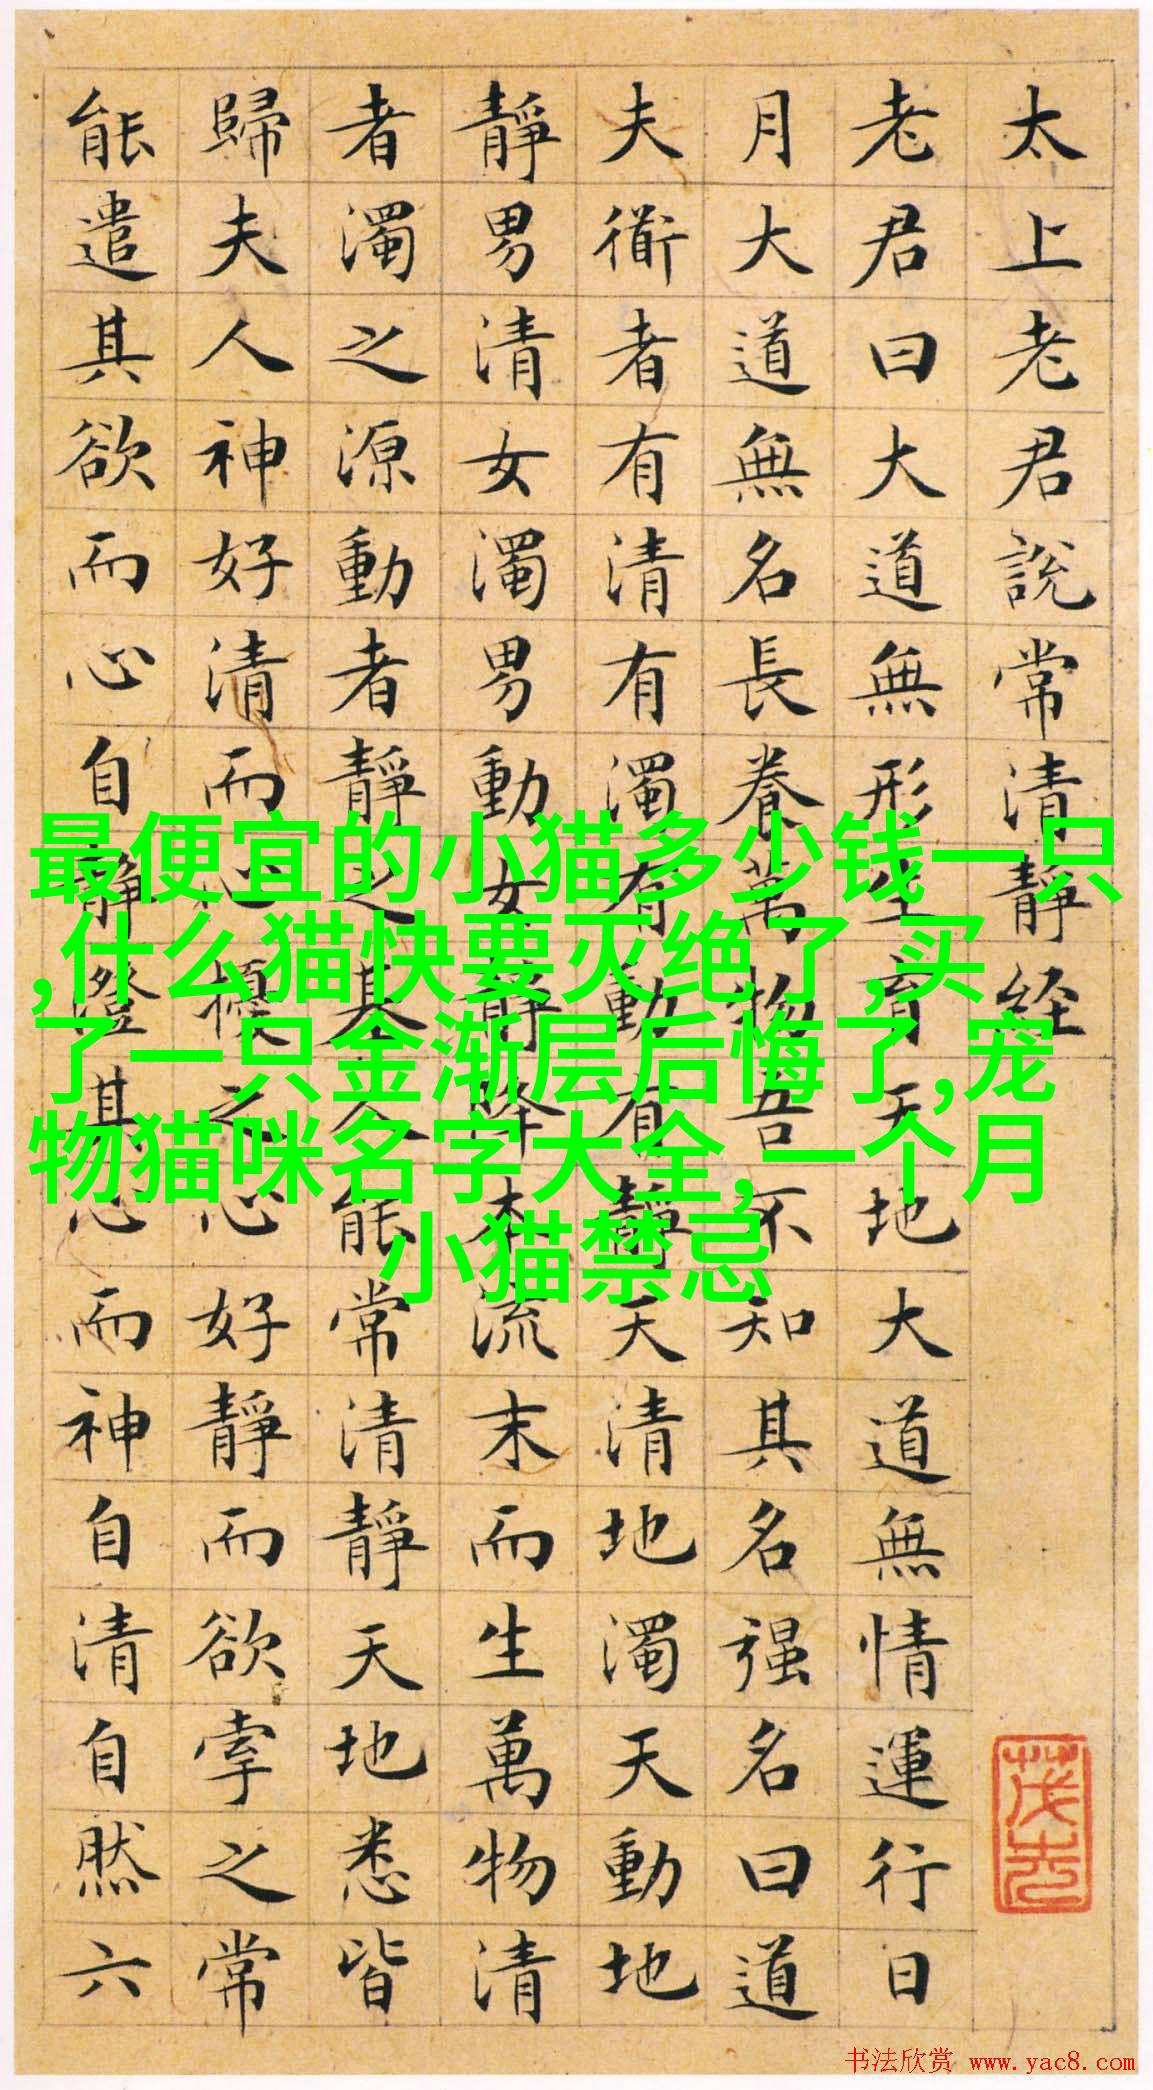 太上老君說常清靜経
老君曰大道無形生育天地大道無情運行日
月大道無名長養萬物吾不知其名强名曰道
夫衜者有清有濁有動有靜天清地濁天動地
靜男清女濁男動女靜降本流末而生萬物清
者濁之源動者靜之基人能常清靜天地悉皆
歸夫人神好清而心擾之心好靜而欲牽之常
能遣其欲而心自靜澄其心而神自清自然六
最便宜的小猫多少钱一只
,什么猫快要灭绝了,买
了一只金渐层后悔了,宠
物猫咪名字大全,一个月
小猫禁忌
书法欣赏 www.yac8.com